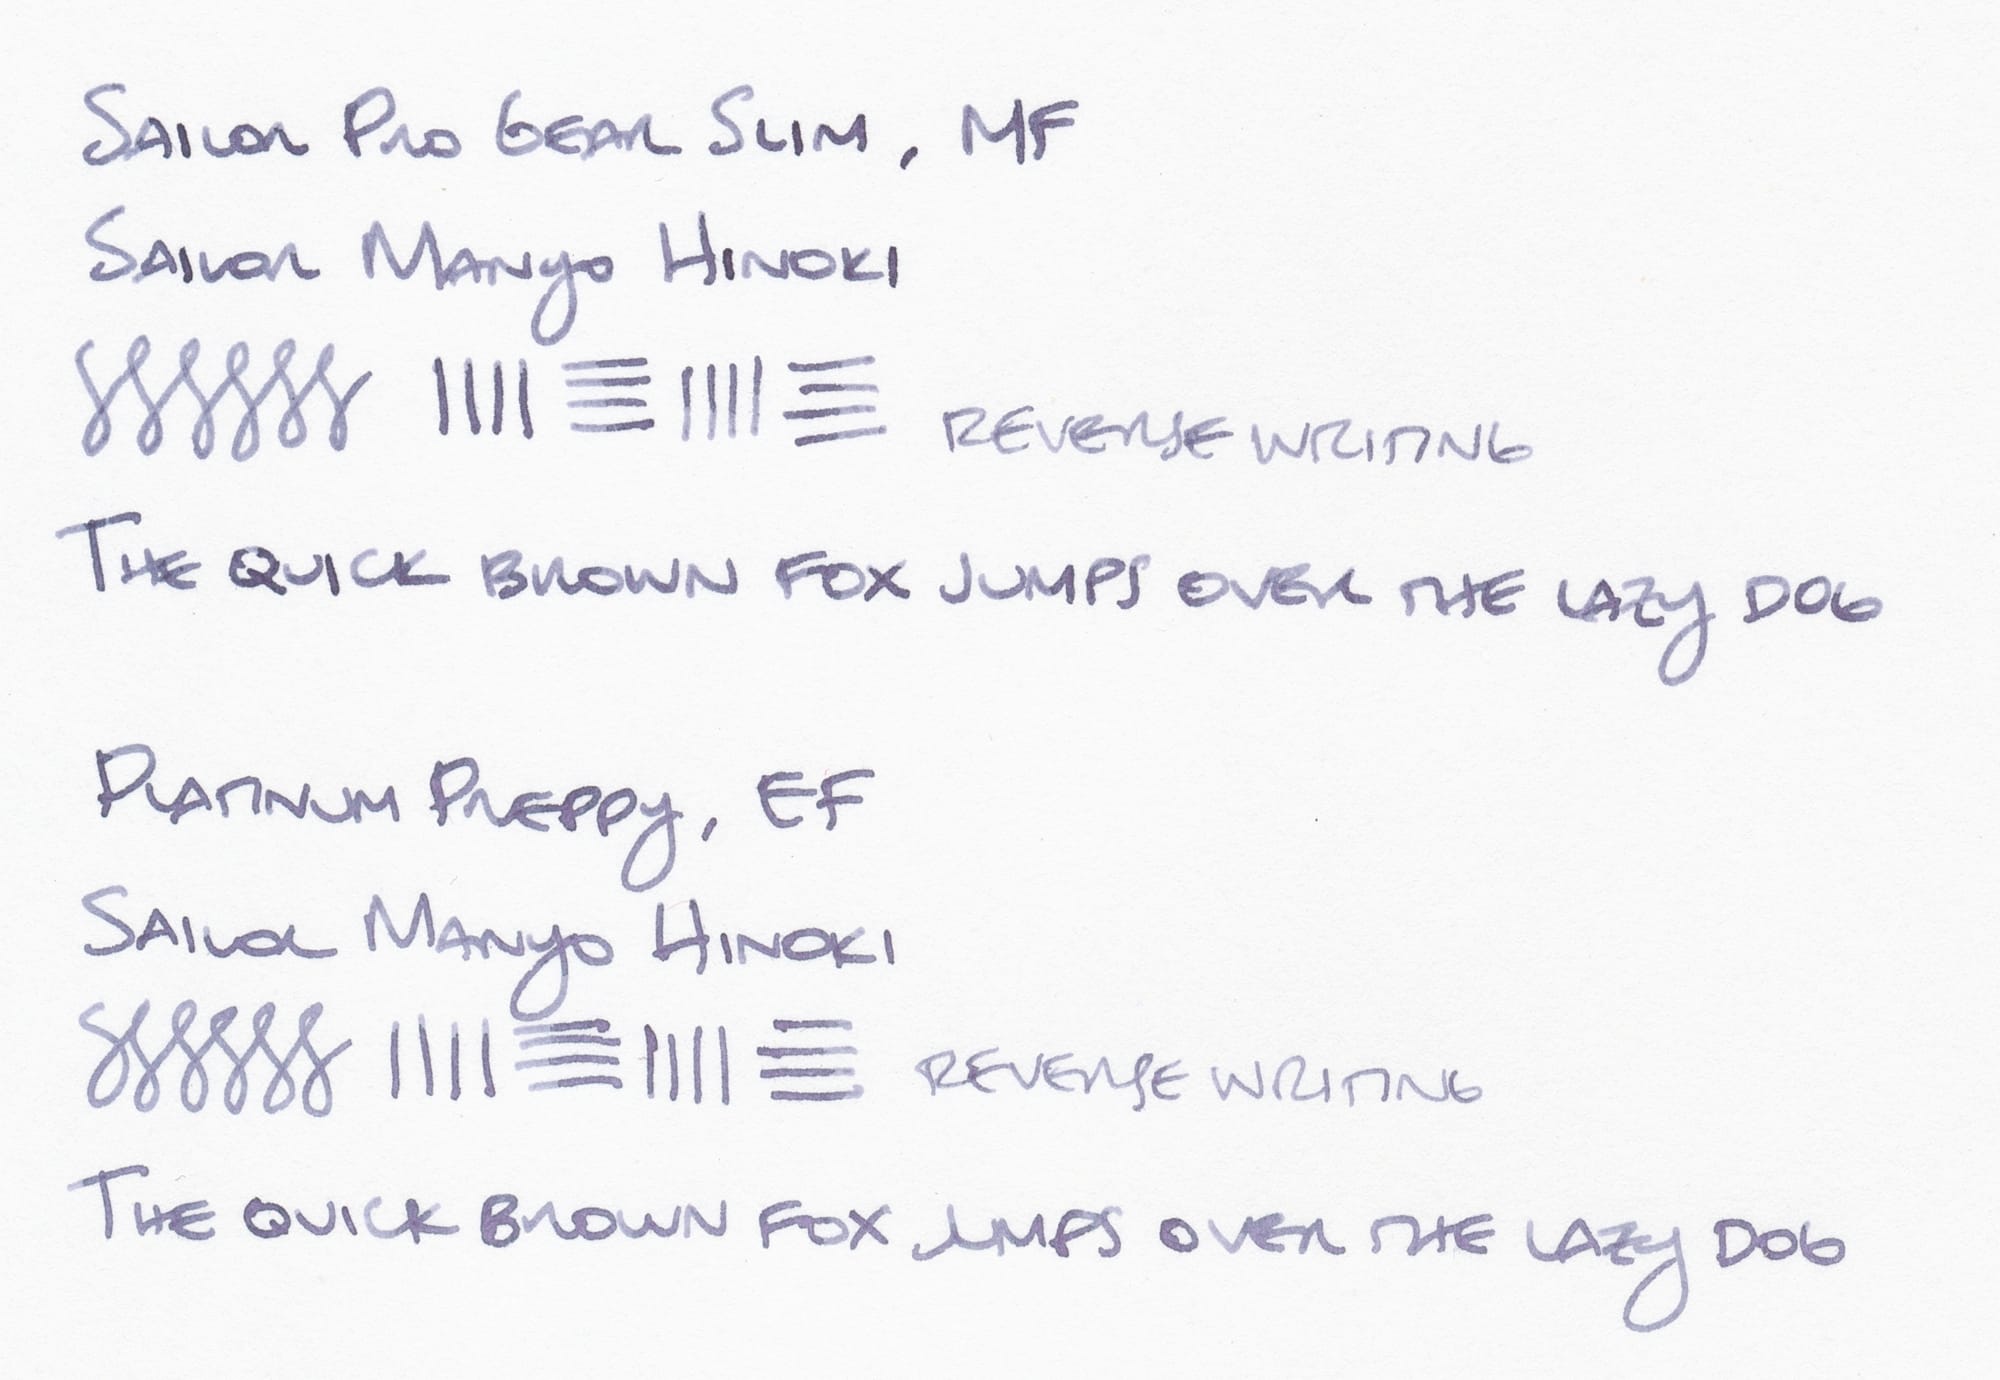 Sailor Pro Gear Slim, MF
Sailor Manyo Hinoki
REVERSE WRITING
THE QUICK BROWN FOX JUMPS OVER THE LAZY DOG
Platinum Preppy, EF
Sailor Manyo Hinoki
REVERSE WRITING
THE QUICK BROWN FOX JUMPS OVER THE LAZY DOG